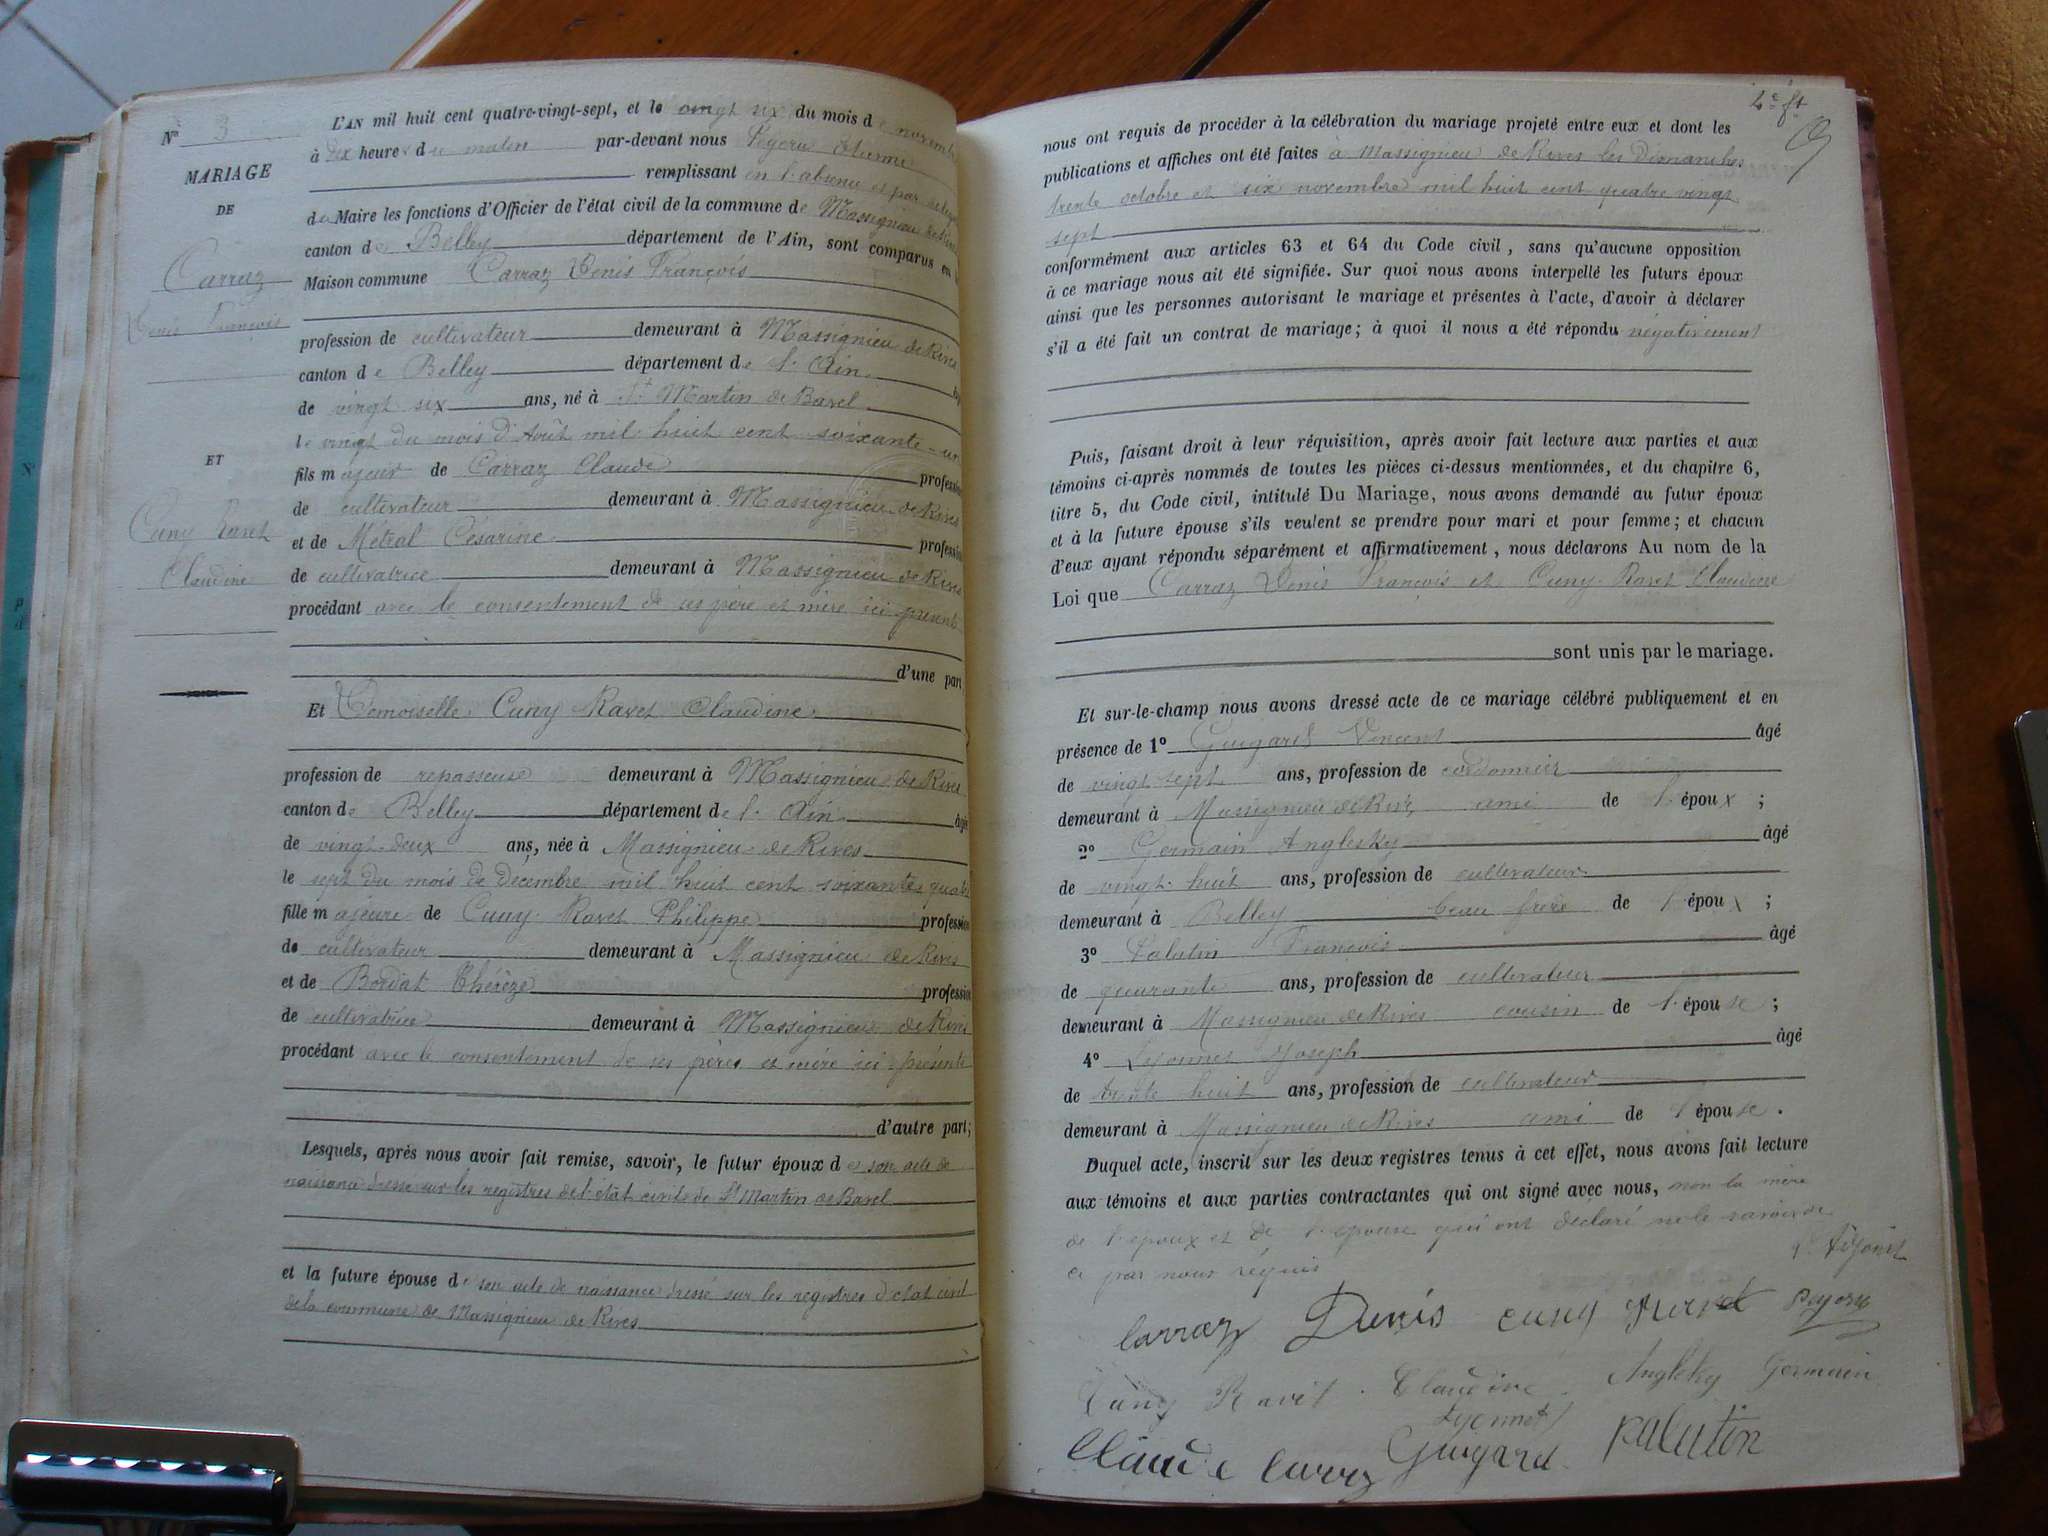 N° 3
MARIAGE
DE
Carraz
Denis François
ET
Cuny Ravet
Claudine
L'AN mil huit cent quatre-vingt-sept, et le vingt six du mois de novemb
à dix heures du matin par-devant nous Pegoru Etienne
remplissant en l'absence et par
du Maire les fonctions d'Officier de l'état civil de la commune de Massignieu de Rives
canton de Belley département de l'Ain, sont comparus en l
Maison commune Carraz Denis François
profession de cultivateur demeurant à Massignieu de Rives
canton de Belley département de l'Ain
de vingt six ans, né à St Martin de Bavel
le vingt du mois d'Août mil huit cent soixante-un
fils majeur de Carraz Claude profession
de cultivateur demeurant à Massignieu de Rives
et de Métral Césarine profession
de cultivatrice demeurant à Massignieu de Rives
procédant avec le consentement de ses père et mère ici présents
d'une part
Et Demoiselle Cuny Ravet Claudine
profession de repasseuse demeurant à Massignieu de Rives
canton de Belley département de l'Ain âgé
de vingt-deux ans, née à Massignieu de Rives
le sept du mois de Décembre mil huit cent soixante quatre
fille majeure de Cuny-Ravet Philippe profession
de cultivateur demeurant à Massignieu de Rives
et de Bordat Thérèze profession
de cultivatrice demeurant à Massignieu de Rives
procédant avec le consentement de ses pères et mère ici présents
d'autre part;
Lesquels, après nous avoir fait remise, savoir, le futur époux de son acte de
naissance dressé sur les registres de l'état civils de St Martin de Bavel
et la future épouse de son acte de naissance dressé sur les registres d'état civil
de la commune de Massignieu de Rives
2e ft
nous ont requis de procéder à la célébration du mariage projeté entre eux et dont les
publications et affiches ont été faites à Massignieu de Rives les Dimanches
trente octobre et six novembre mil huit cent quatre vingt
sept
conformément aux articles 63 et 64 du Code civil, sans qu'aucune opposition
à ce mariage nous ait été signifiée. Sur quoi nous avons interpellé les futurs époux
ainsi que les personnes autorisant le mariage et présentes à l'acte, d'avoir à déclarer
s'il a été fait un contrat de mariage; à quoi il nous a été répondu négativement
Puis, faisant droit à leur réquisition, après avoir fait lecture aux parties et aux
témoins ci-après nommés de toutes les pièces ci-dessus mentionnées, et du chapitre 6,
titre 5, du Code civil, intitulé Du Mariage, nous avons demandé au futur époux
et à la future épouse s'ils veulent se prendre pour mari et pour femme; et chacun
d'eux ayant répondu séparément et affirmativement, nous déclarons Au nom de la
Loi que Carraz Denis François et Cuny-Ravet Claudine
sont unis par le mariage.
Et sur-le-champ nous avons dressé acte de ce mariage célébré publiquement et en
présence de 1° Guigard Vincent âgé
de vingt sept ans, profession de cordonnier
demeurant à Massignieu de Rives ami de l'époux;
2° Germain Anglesky âgé
de vingt-huit ans, profession de cultivateur
demeurant à Belley beau frère de l'époux;
3° Palutin François âgé
de quarante ans, profession de cultivateur
demeurant à Massignieu de Rives cousin de l'épouse;
4° Lyonnet Joseph âgé
de trente huit ans, profession de cultivateur
demeurant à Massignieu de Rives ami de l'épouse.
Duquel acte, inscrit sur les deux registres tenus à cet effet, nous avons fait lecture
aux témoins et aux parties contractantes qui ont signé avec nous, non la mère
de l'époux et de l'épouse qui ont déclaré ne le savoir de
ce par nous réquis
l'Adjoint
Carraz Denis Cuny Ravet
Cuny Ravet Claudine Anglesky Germain
Lyonnet
Claude Carraz Guigard Palutin